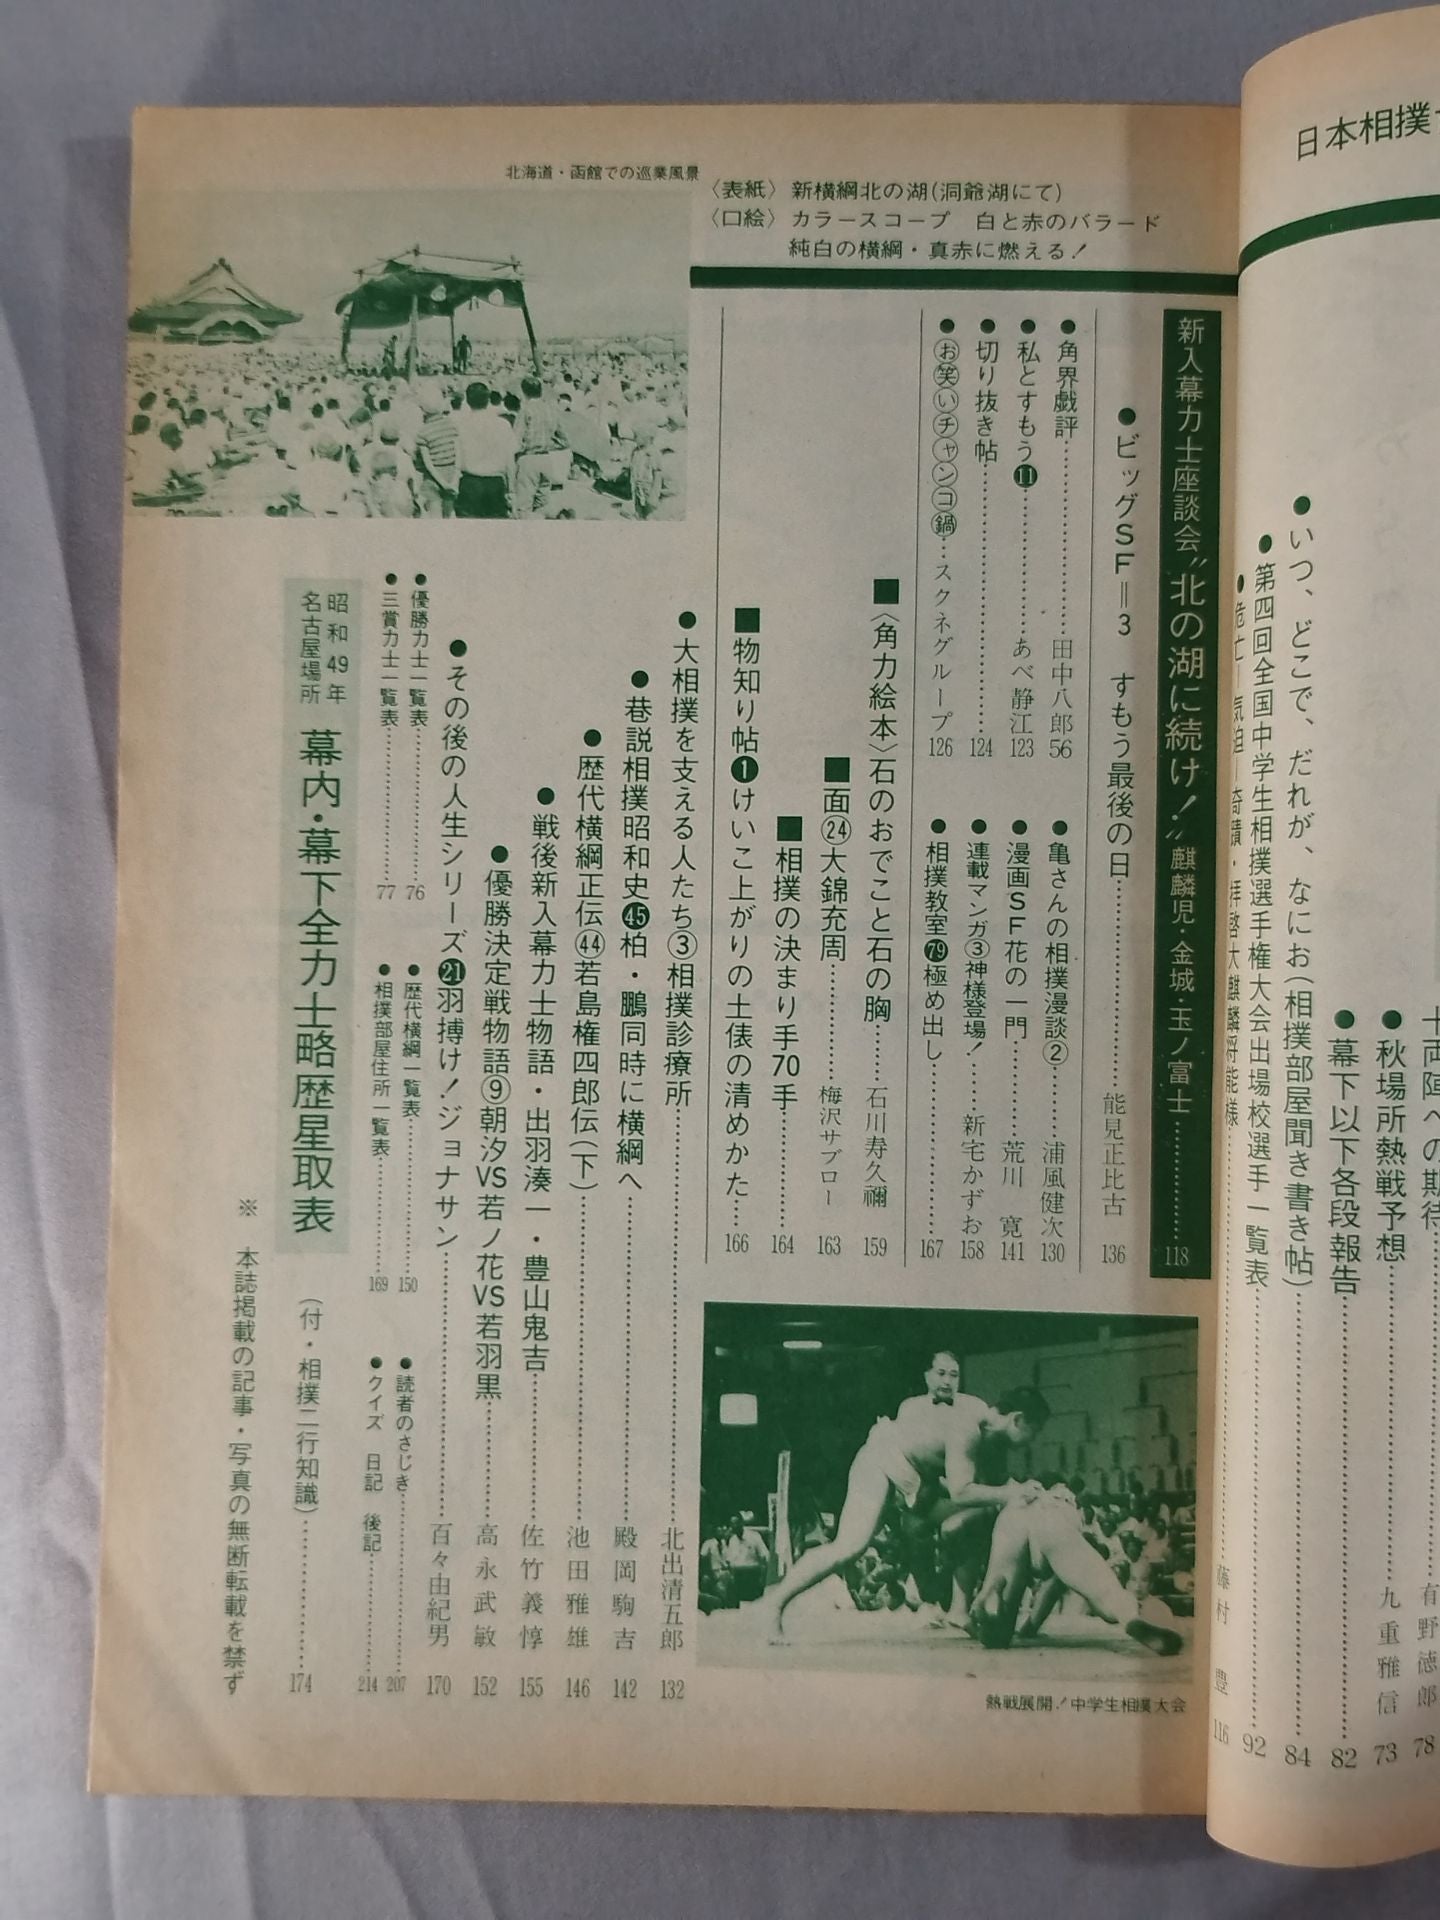 日本相撲
十両陣への期待
有野徳郎 78
●秋場所熱戦予想
九重雅信 73
●幕下以下各段報告
82
●いつ、どこで、だれが、なにお(相撲部屋聞き書き帖)
84
●第四回全国中学生相撲選手権大会出場校選手一覧表
92
●危亡=気迫=奇蹟・拝啓大麒麟将能様
藤村 豊 116
北海道・函館での巡業風景
〈表紙〉 新横綱北の湖(洞爺湖にて)
〈口絵〉 カラースコープ 白と赤のバラード
純白の横綱・真赤に燃える!
新入幕力士座談会〝北の湖に続け!〟麒麟児・金城・玉ノ富士……118
●ビッグSF=3 すもう最後の日……能見正比古 136
●角界戯評……田中八郎 56
●私とすもう⓫……あべ静江 123
●切り抜き帖……124
●お笑いチャンコ鍋…スクネグループ 126
●亀さんの相撲漫談②……浦風健次 130
●漫画SF花の一門……荒川 寛 141
●連載マンガ③神様登場!……新宅かずお 158
●相撲教室㊆極め出し……167
■〈角力絵本〉石のおでこと石の胸……石川寿久禰 159
■面㉔大錦充周……梅沢サブロー 163
■相撲の決まり手70手……164
■物知り帖❶けいこ上がりの土俵の清めかた……166
●大相撲を支える人たち③相撲診療所……北出清五郎 132
●巷説相撲昭和史㊺柏・鵬同時に横綱へ……殿岡駒吉 142
●歴代横綱正伝㊹若島権四郎伝(下)……池田雅雄 146
●戦後新入幕力士物語・出羽湊一・豊山鬼吉……佐竹義惇 155
●優勝決定戦物語⑨朝汐VS若ノ花VS若羽黒……高永武敏 152
●その後の人生シリーズ㉑羽搏け!ジョナサン……百々由紀男 170
●優勝力士一覧表……76
●三賞力士一覧表……77
●歴代横綱一覧表……150
●相撲部屋住所一覧表……169
●読者のさじき……207
●クイズ 日記 後記……214
昭和49年
名古屋場所
幕内・幕下全力士略歴星取表
(付・相撲二行知識)……174
※ 本誌掲載の記事・写真の無断転載を禁ず
熱戦展開!中学生相撲大会